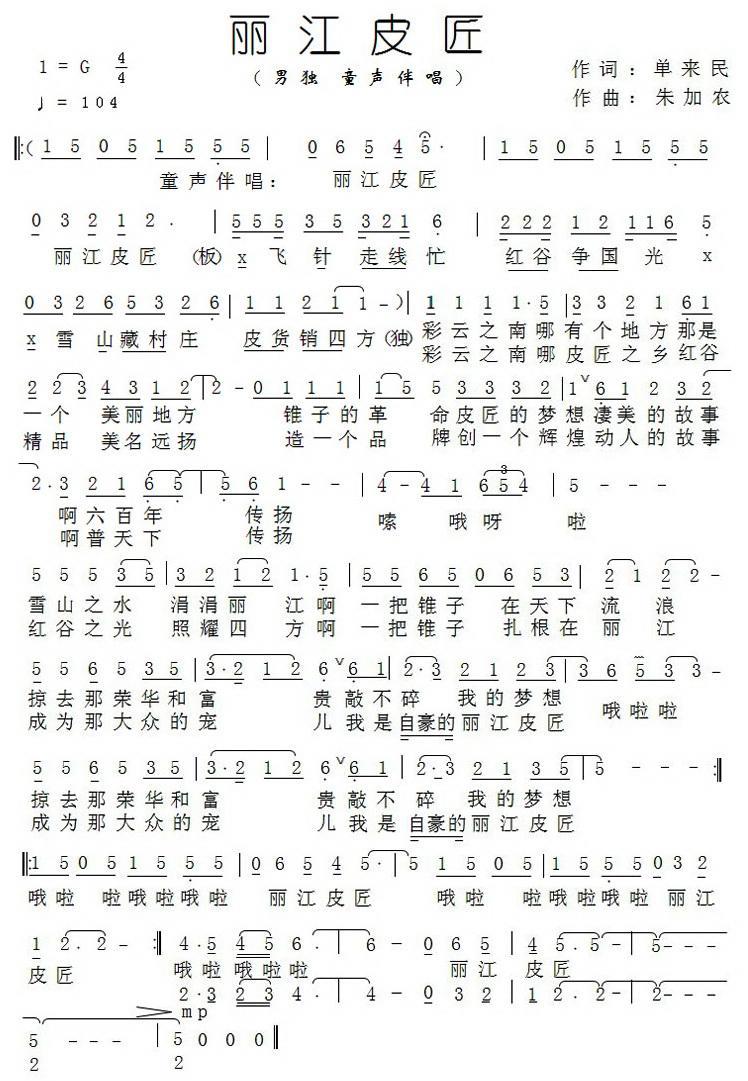 丽江皮匠
1 = G 4/4
（男独 童声伴唱）
作词：单来民
♩= 104
作曲：朱加农
‖:( 1 5 0 5 1 5 5 5 | 0 6 5 4 5· | 1 5 0 5 1 5 5 5
童声伴唱： 丽江皮匠
0 3 2 1 2 · | 5 5 5 3 5 3 2 1 6 | 2 2 2 1 2 1 1 6 5
丽江皮匠 (板) x 飞 针 走线 忙 红谷 争国 光 x
0 3 2 6 5 3 2 6 | 1 1 2 1 1 - ) | 1 1 1 1·5 | 3 3 2 1 6 1
x 雪 山藏村庄 皮货销四方(独) 彩云之南哪有个地方那是
彩云之南哪皮匠之乡红谷
2 2 3 4 3 1 2 | 2 - 0 1 1 1 | 1 5 5 3 3 3 2 | 1 ∨ 6 1 2 3 2
一个 美丽地方 锥子的革 命皮匠的梦想凄美的故事
精品 美名远扬 造一个品 牌创一个辉煌动人的故事
2·3 2 1 6 5 | 5 5 6 1 - - | 4 - 4 1 6 5 4 | 5 - - -
啊六百年 传扬 嗦 哦呀 啦
啊普天下 传扬
5 5 5 3 5 | 3 2 1 2 1·5 | 5 5 6 5 0 6 5 3 | 2 1 2 -
雪山之水 涓涓丽 江啊 一把锥子 在天下 流浪
红谷之光 照耀四 方啊 一把锥子 扎根在 丽江
5 5 6 5 3 5 | 3·2 1 2 6 ∨ 6 1 | 2·3 2 1 2 1 3 | 3 6 5 3 3 -
掠去那荣华和富 贵敲不碎 我的梦想 哦啦啦
成为那大众的宠 儿我是自豪的丽江皮匠
5 5 6 5 3 5 | 3·2 1 2 6 ∨ 6 1 | 2·3 2 1 3 5 | 5 - - - :‖
掠去那荣华和富 贵敲不碎 我的梦想
成为那大众的宠 儿我是自豪的丽江皮匠
‖: 1 5 0 5 1 5 5 5 | 0 6 5 4 5 · | 5 1 5 0 5 | 1 5 5 5 0 3 2
哦啦 啦哦啦哦啦 丽江皮匠 哦啦 啦哦啦哦啦 丽江
1 2· 2· - :‖ 4·5 4 5 6· | 6 - 0 6 5 | 4 5· 5· | 5 - - -
皮匠 哦啦哦啦啦 丽江 皮匠
2·3 2 3 4· | 4 - 0 3 2 | 1 2· 2· | 2 - - -
mp
5 - - - | 5 0 0 0 ‖
2 2